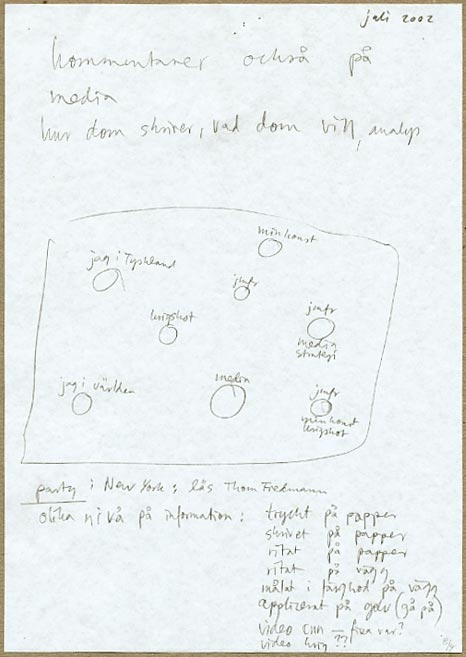 juli 2002
kommentarer också på
media
hur dom skriver, vad dom vill, analys
min konst
jag i Tyskland
jmfr
krigshot
jmfr
media
strategi
jag i världen
media
jmfr
min konst
krigshot
party i New York: läs Thom Friedmann
olika nivå på information:
tryckt på papper
skrivet på papper
ritat på papper
ritat på vägg
målat i färg på vägg
applicerat på golv (gå på)
video cnn — fixa var?
video krig ??